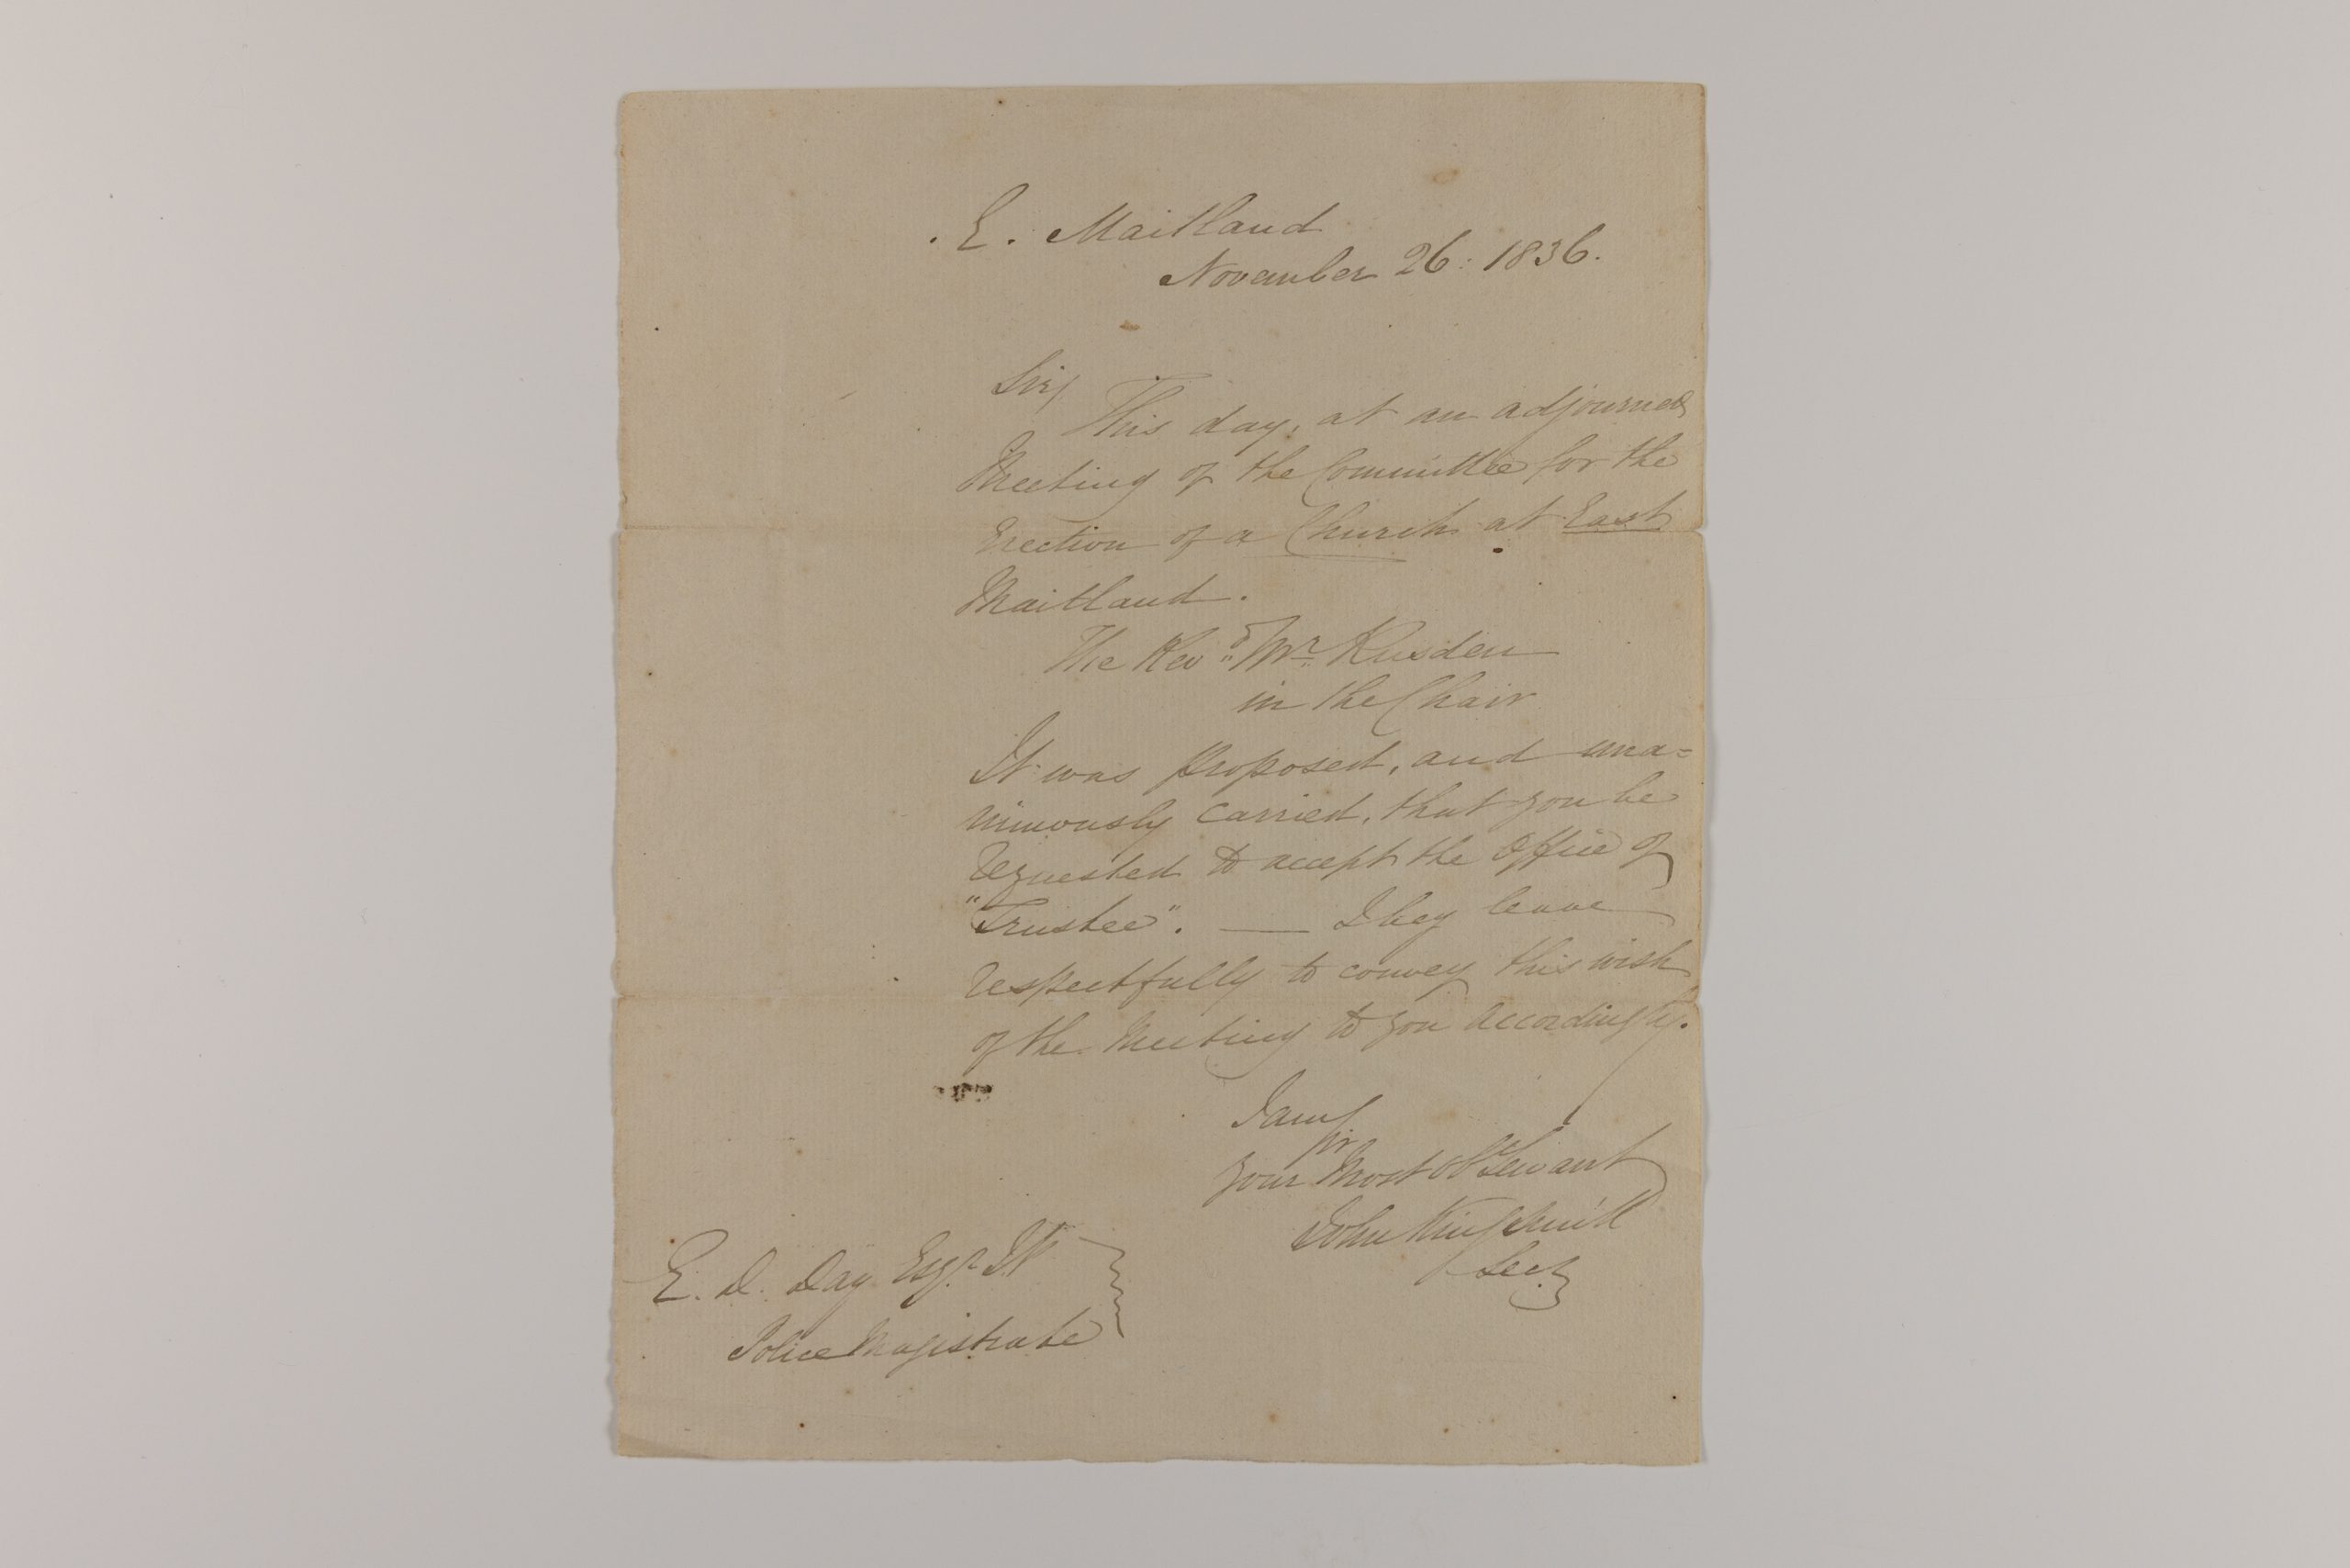 E. Maitland
November 26: 1836.
Sir/
This day, at an adjourned
Meeting of the Committee for the
Erection of a Church at East
Maitland.
The Revd Mr Rusden
in the Chair
It was proposed, and una=
nimously carried, that you be
requested to accept the Office of
"Trustee". — I beg leave
respectfully to convey this wish
of the Meeting to you accordingly.
I am
Sir
your Most Obt Servant
John Kingsmill
Secy
E. D. Day Esqr J.P.
Police Magistrate